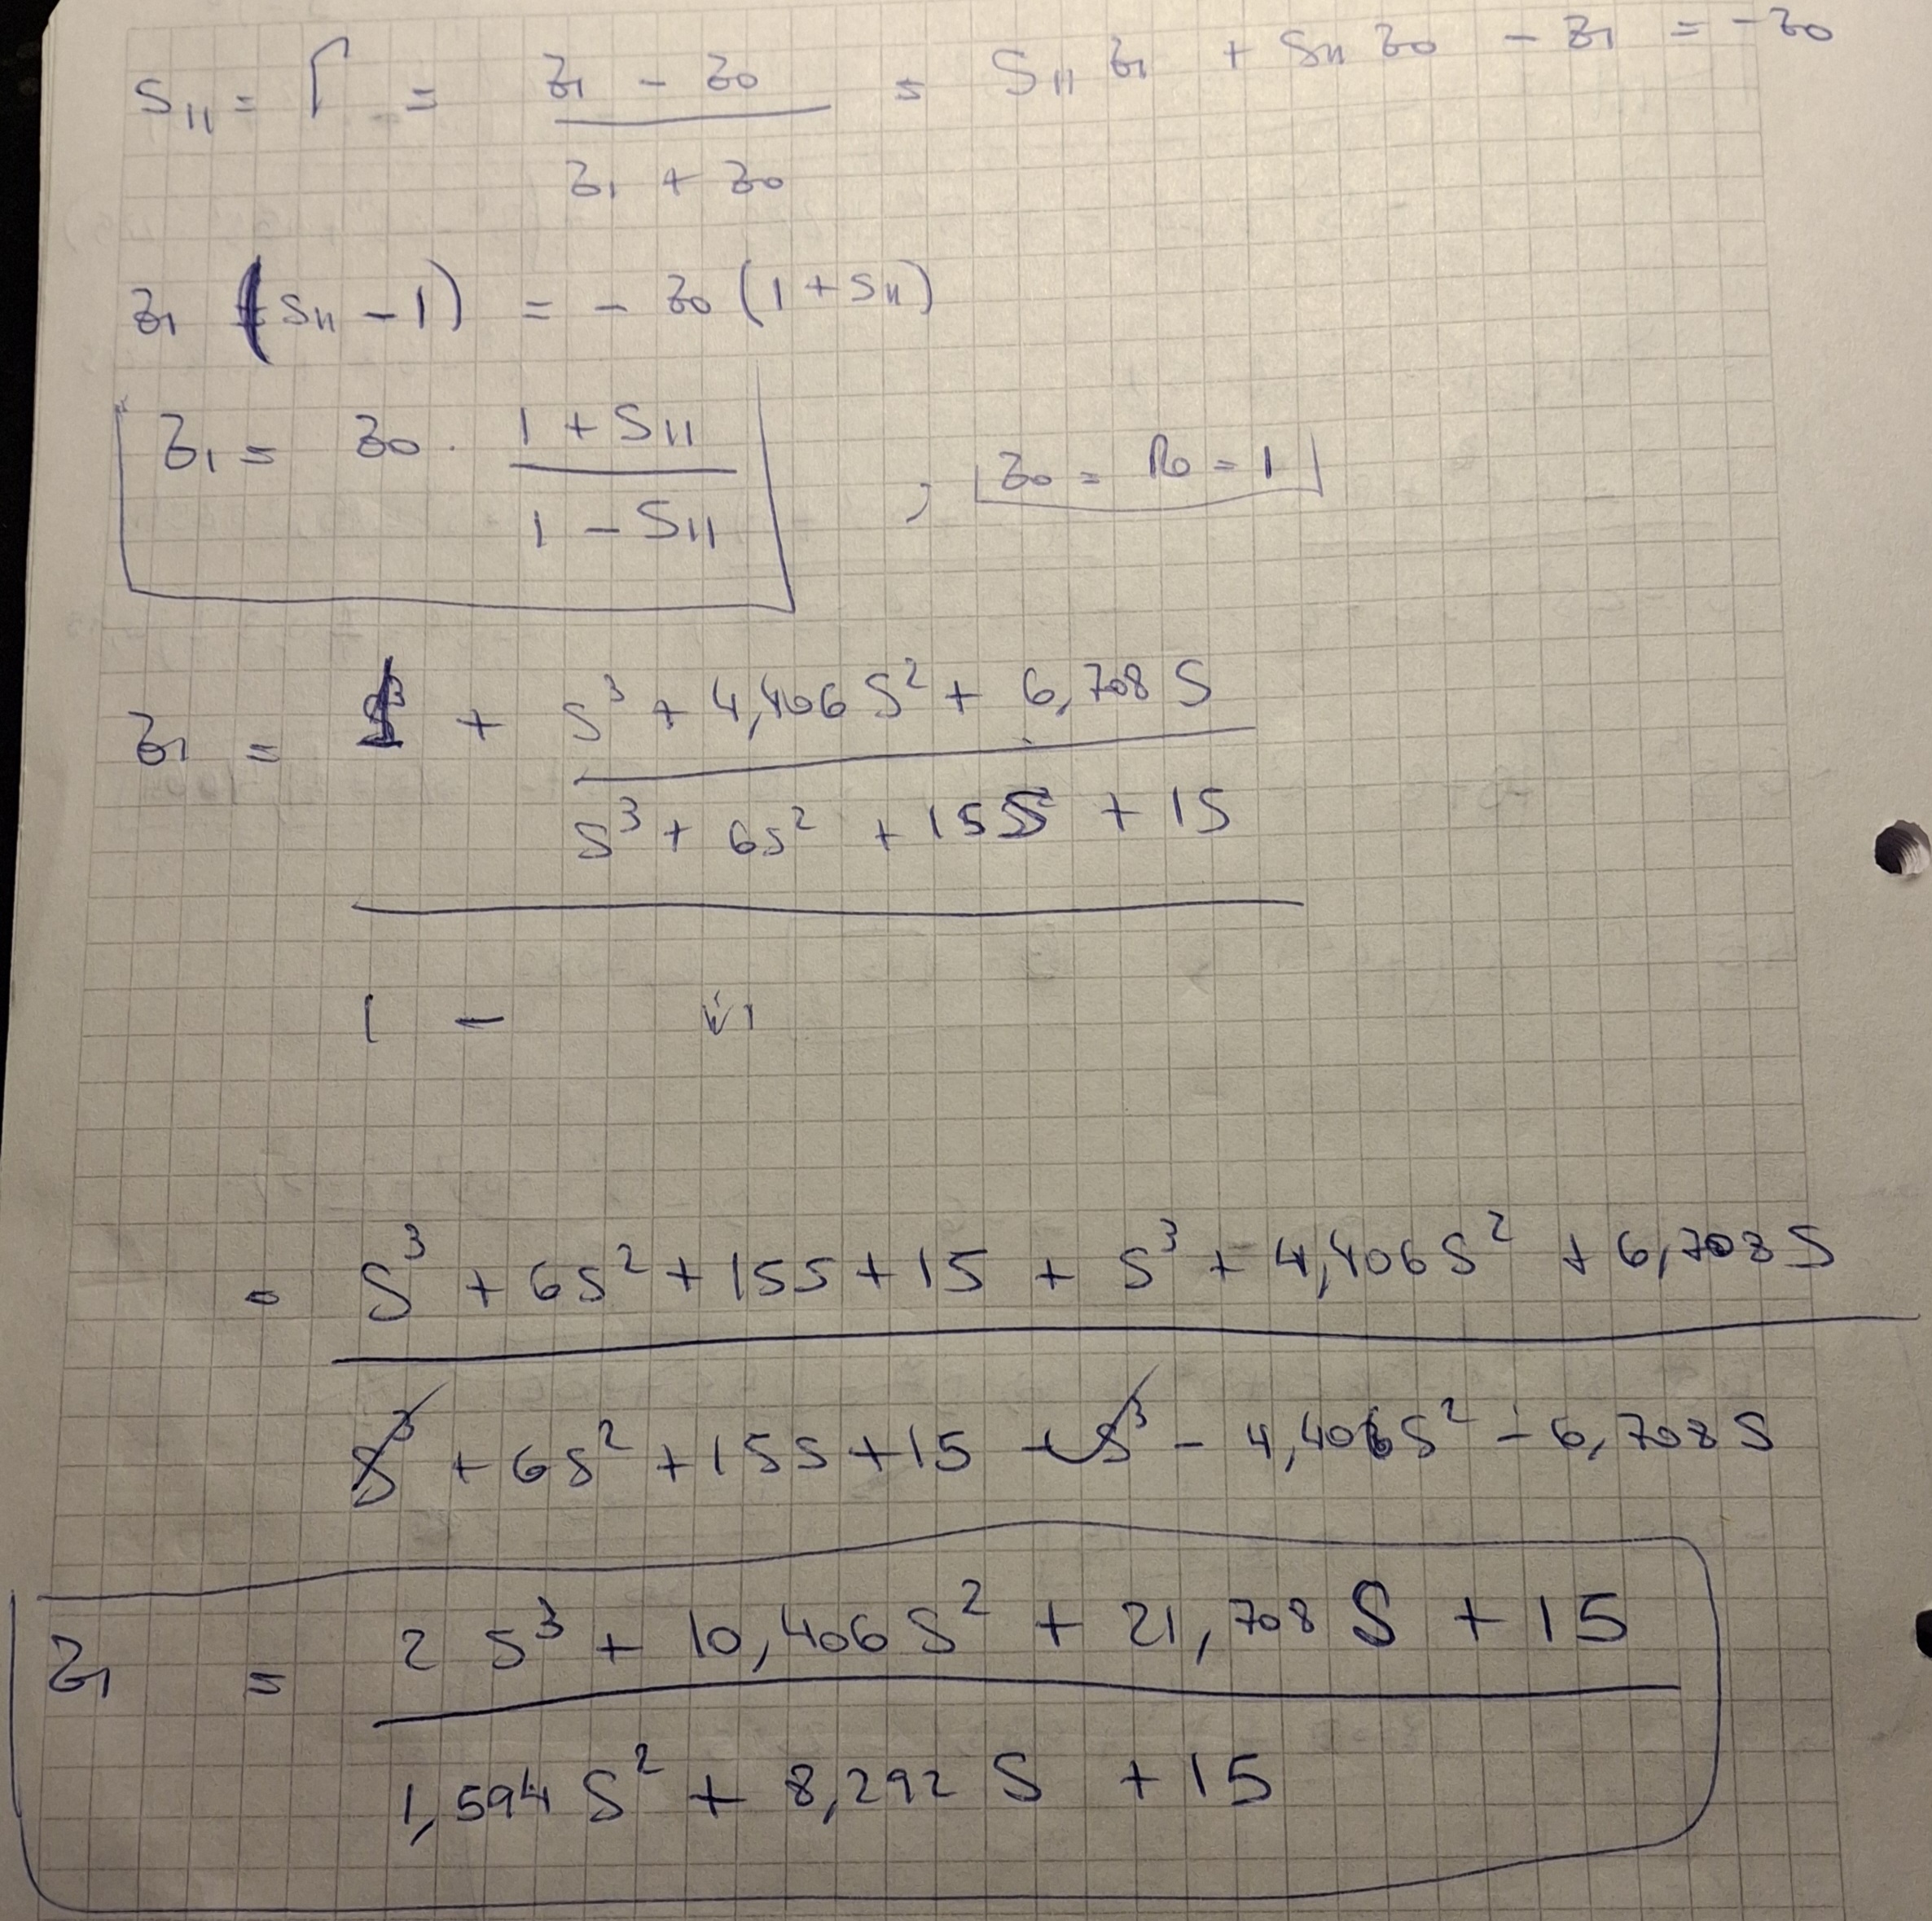 S₁₁ = Γ = (Z₁ - Z₀) / (Z₁ + Z₀) = S₁₁ Z₁ + S₁₁ Z₀ - Z₁ = -Z₀
Z₁ (S₁₁ - 1) = - Z₀ (1 + S₁₁)
Z₁ = Z₀ · (1 + S₁₁) / (1 - S₁₁) , Z₀ = R₀ = 1
Z₁ = 1 + (S³ + 4,406 S² + 6,708 S) / (S³ + 6S² + 15S + 15)
1 - 〃
= S³ + 6S² + 15S + 15 + S³ + 4,406 S² + 6,708 S
S³ + 6S² + 15S + 15 - S³ - 4,406 S² - 6,708 S
Z₁ = 2 S³ + 10,406 S² + 21,708 S + 15
1,594 S² + 8,292 S + 15